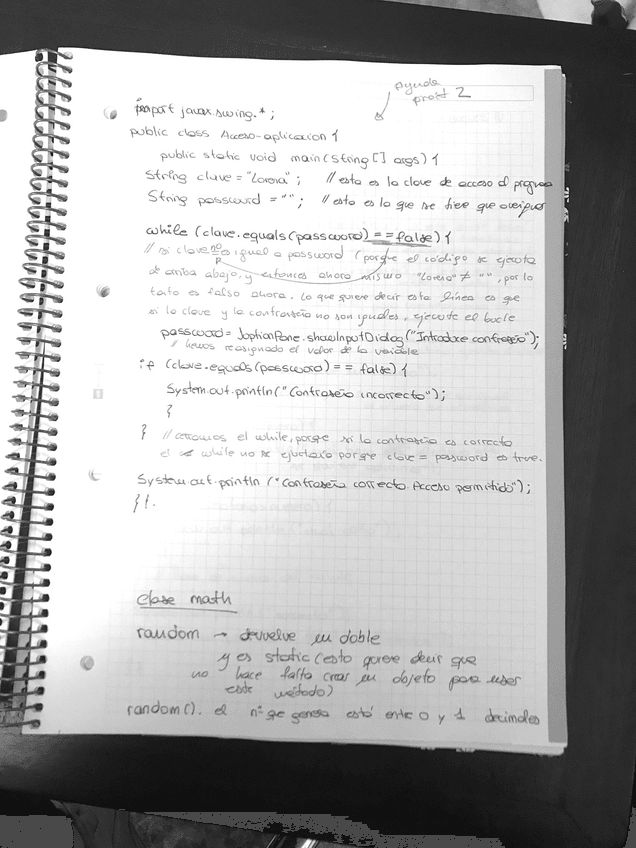 Ayuda
pract 2
import javax.swing.*;
public class Acceso-aplicacion {
public static void main(String [] args) {
String clave = "Lorena"; // esta es la clave de acceso al programa
String password = ""; // esto es lo que se tiene que averiguar
while (clave.equals(password) == false) {
// si clave no es igual a password (porque el código se ejecuta
de arriba abajo, y entonces ahora mismo "Lorena" ≠ "", por lo
tanto es falso ahora. Lo que quiere decir esta línea es que
si la clave y la contraseña no son iguales, ejecute el bucle
password = JoptionPane.showInputDialog("Introduce contraseña");
// hemos reasignado el valor de la variable
if (clave.equals(password) == false) {
System.out.println("Contraseña incorrecta");
}
} // cerramos el while, porque si la contraseña es correcta
el while no se ejecutaría porque clave = password es true.
System.out.println ("Contraseña correcta. Acceso permitido");
}}.
clase math
random → devuelve un doble
y es static (esto quiere decir que
no hace falta crear un objeto para usar
este método)
random(). el nº que genera está entre 0 y 1 decimales